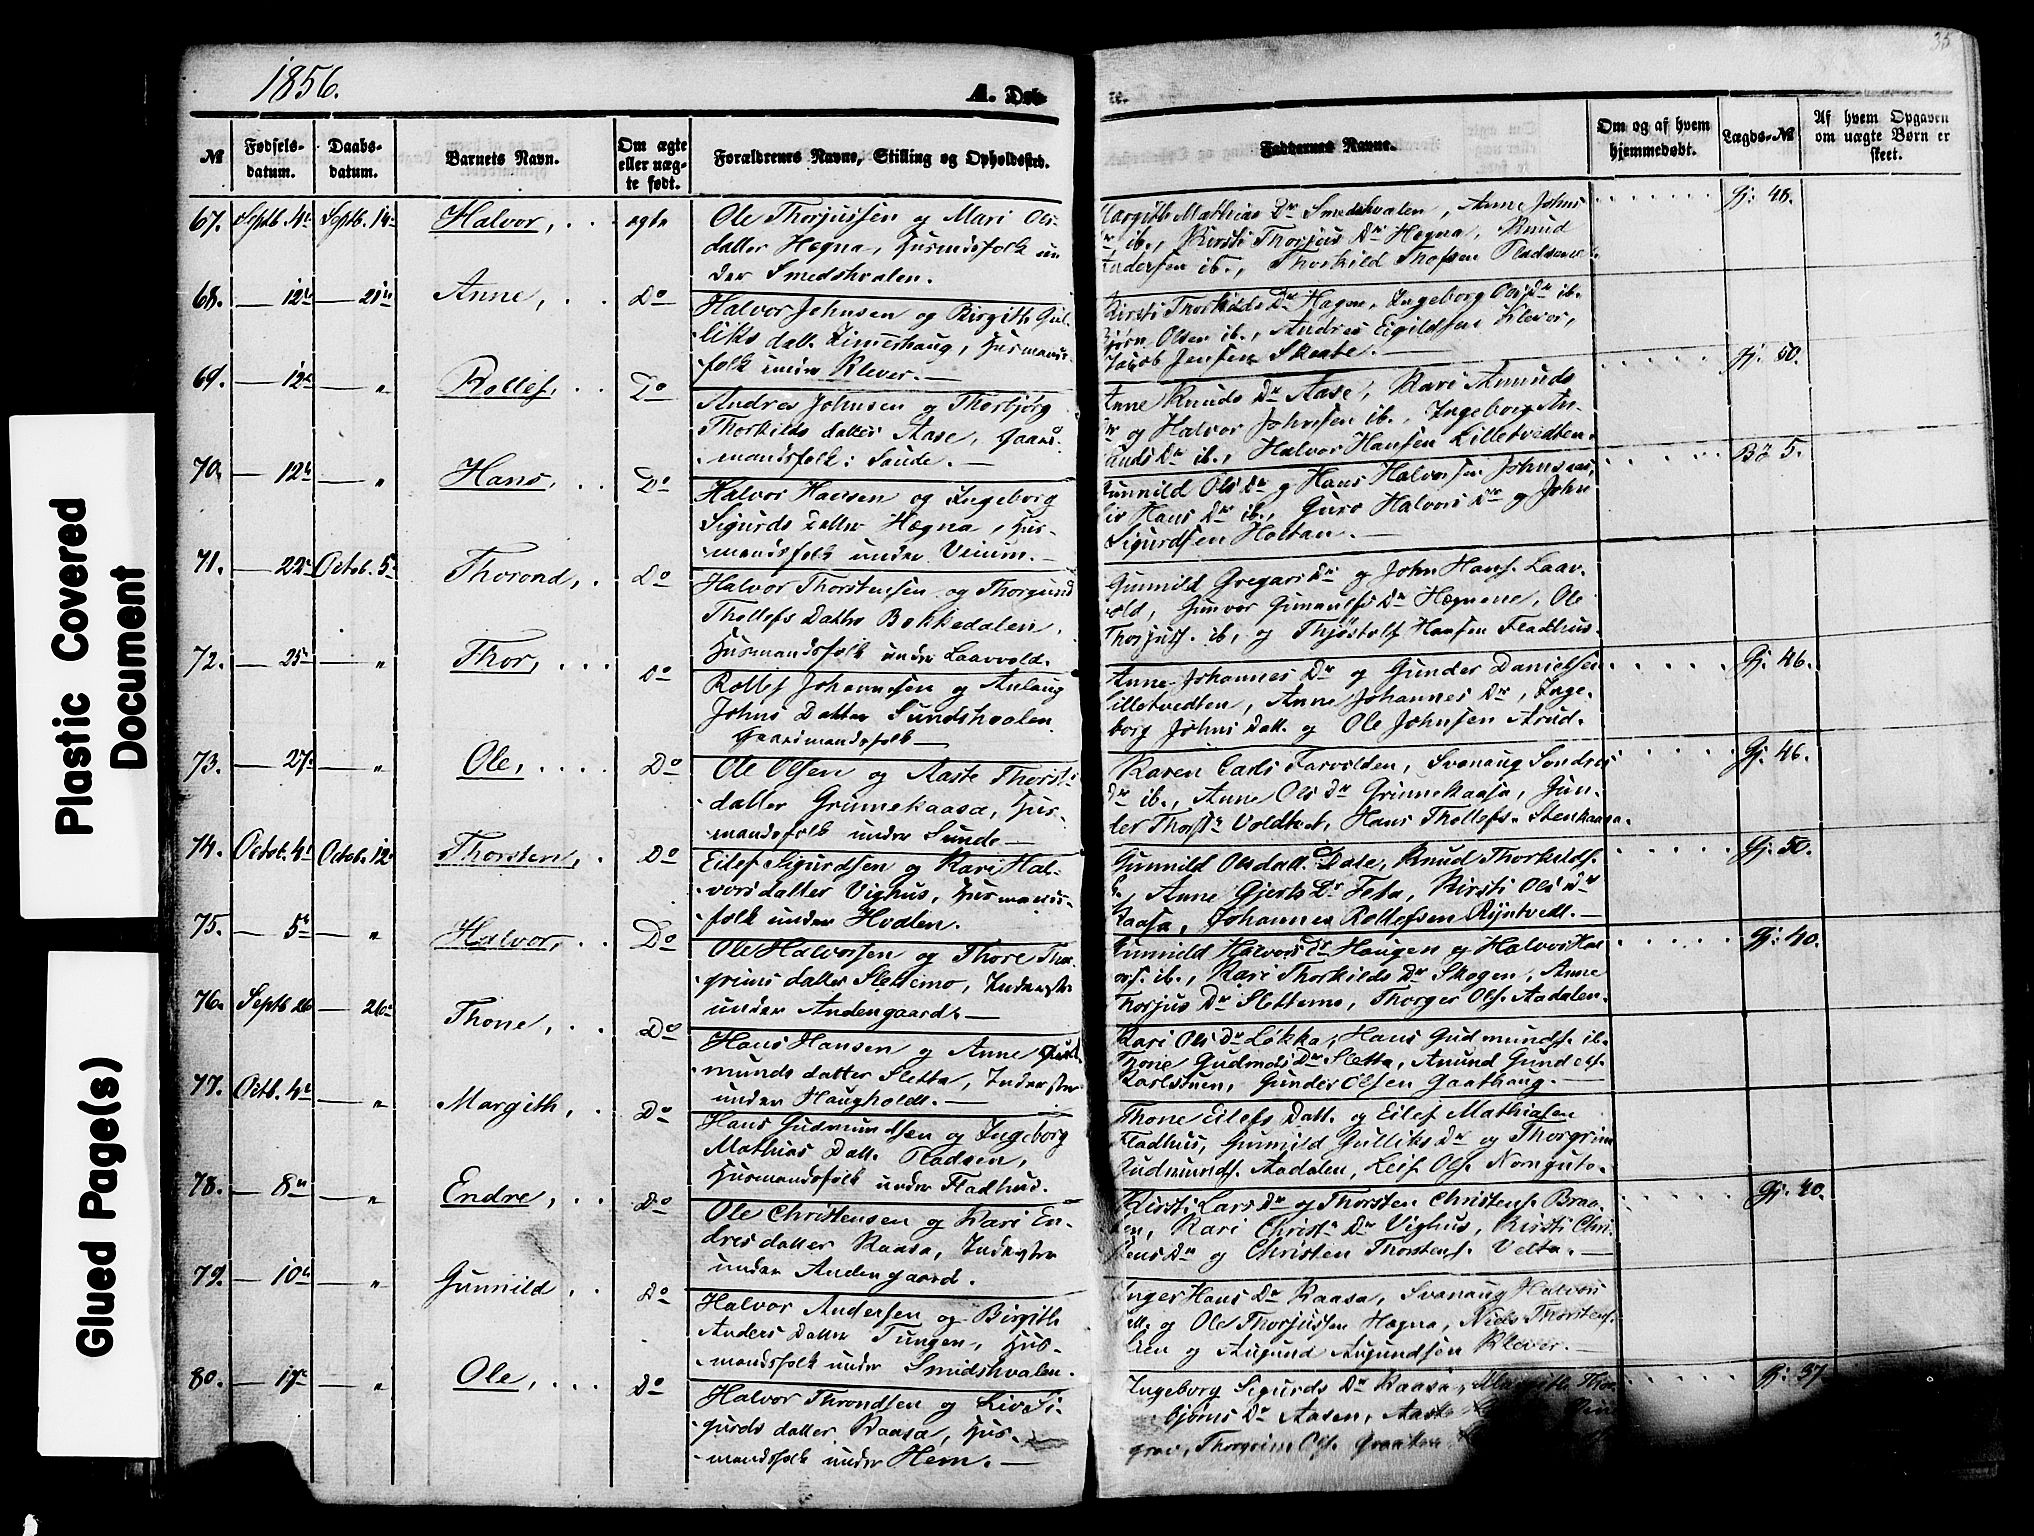 35
1856.
A. Døb-
te.
№
Fødsels-
datum.
Daabs-
datum.
Barnets Navn.
Om ægte
eller uæg-
te født.
Forældrenes Navne, Stilling og Opholdssted.
Faddernes Navne.
Om og af hvem
hjemmedøbt.
Lægds-№
Af hvem Opgaven
om uægte Børn er
skeet.
67. Septb. 4de Septb. 14de Halvor, ægte
Ole Thorjussen og Mari Ols-
datter Hegna, Husmdsfolk un
der Smedshvalen.
Margith Mathias Dr Smedshvalen, Anne Johns
Dr ib., Kirsti Thorjus Dr Hægna, Knud
Andersen ib., Thorkild Thofsen Pladsene
Gj. 48.
68. — 12te — 21de Anne, Do
Halvor Johnsen og Birgith Gul-
liks datt. Timerhaug, Husmands-
folk under Klever. —
Kirsti Thorkilds Dr Hagne, Ingeborg Ols Dr ib.
Bjørn Olsen ib., Andres Egildsen Klevar,
Jacob Jensen Skaabe. —
69. — 12te — „ Rollef, Do
Andres Johnsen og Thorbjørg
Thorkilds datter Aase, Gaard-
mandsfolk: Sunde. —
Anne Knuds Dr Aase, Kari Amunds
Dr og Halvor Johnsen ib., Ingeborg An-
unds Dr ib., Halvor Hansen Lilletvedten
Gj. 50.
70. — 12te — „ Hans, Do
Halvor Hansen og Ingeborg
Sigurds datter Hægna, Hus-
mandsfolk under Veium. —
Gunnild Ols Dr og Hans Halvorsen Johnsaas,
Liv Hans Dr ib., Guro Halvors Dr og John
Sigurdsen Holtan. —
Bø 5.
71. — 22de Octob. 5te Thorond, Do
Halvor Thorstensen og Thorgund
Thollefs Datter Bakkedalen,
Husmandsfolk under Laavold.
Gunnild Gregari Dr og John Hans. Laav-
vold, Gunvor Gunnulfs Dr Hægnene, Ole
Thorjuss. ib., og Thjøstolf Hansen Fladhus.
72. — 25de — „ Thor, Do
Rollef Johannesen og Anlaug
Johns Datter Sundshvalen
Gaardmandsfolk —
Anne Johannes Dr og Gunder Danielsen
Lilletvedten, Anne Johannes Dr, Inge-
borg Johns Datt. og Ole Johnsen Strud.
Gj. 46.
73. — 27de — „ Ole, Do
Ole Olsen og Aaste Thorst.
datter Grinnekaasa, Hus-
mandsfolk under Sunde —
Karen Carls Farvolden, Svanaug Sondres
Dr ib., Anne Ols Dr Grinnekaasa, Gun-
der Thorst. Voldtvet, Hans Thollefs. Stenkaasa.
Gj. 46.
74. Octob. 4de Octob. 12te Thorsten, Do
Eilef Sigurdsen og Kari Hal-
vorsdatter Vighus, Husmands-
folk under Hvdlen.
Gunnild Olsdatt. Aase, Knud Thorkilds.
Anne Gjerts Dr Feta, Kirsti Ols Dr
Kaasa, Johannes Rollefsen Ryntvedt. —
Gj. 50.
75. — 5te — „ Halvor, Do
Ole Halvorsen og Thore Thor-
grims datter Slettemo, Inderster
under Andengaarde —
Gunnild Halvors Dr Haugen og Halvor Hal-
vors. ib., Kari Thorkilds Dr Skogen, Anne
Thorjus Dr Slettemo, Thorger Ols. Aadalen.
Gj. 40.
76. Septb 26 — 26de Thone, Do
Hans Hansen og Anne Gud-
munds datter Sletta, Inderster
under Haugholdt. —
Kari Ols Dr Løkka, Hans Gudmunds. ib.
Thone Gudmds Dr Sletta, Amund Gunders.
Karlstuen, Gunder Olsen Gaathaug. —
77. Octb. 4de — „ Margith, Do
Hans Gudmundsen og Ingeborg
Mathias Datt. Pladsen,
Husmandsfolk under Fladhus.
Thone Eilefs Datt. og Eilef Mathiasen
Fladhus, Gunnild Gulliks Dr og Thorgrim
Gudmunds. Aadalen, Leif Ols. Nomguto.
78. — 8de — „ Endre, Do
Ole Christensen og Kari En-
dresdatter Kaasa, Inderster
under Andengaard.
Kirsti Lars Dr og Thorsten Christens. Braa-
ten, Kari Christ. Dr Vighus, Kirsti Chri-
stens Dr og Christen Thorstens. Velta. —
Gj. 40.
79. — 10de — „ Gunnild, Do
Halvor Andersen og Birgith
Anders Datter Tungen, Hus-
mandsfolk under Smidshvalen.
Inger Hans Dr Kaasa, Svanaug Halvors
Datt. og Ole Thorjussen Hægna, Niels Thorstens.
Lien og Augund Augundsen Klever. —
80. — 17de — „ Ole, Do
Halvor Throndsen og Liv Si-
gurds datter Kaasa, Hus-
mandsfolk under Hem. —
Ingeborg Sigurds Dr Kaasa, Margith Thor-
bjørns Dr Aasen, Aaste
grav, Thorgrim Ols. Graaten
Gj. 37
Plastic Covered
Document
Glued Page(s)